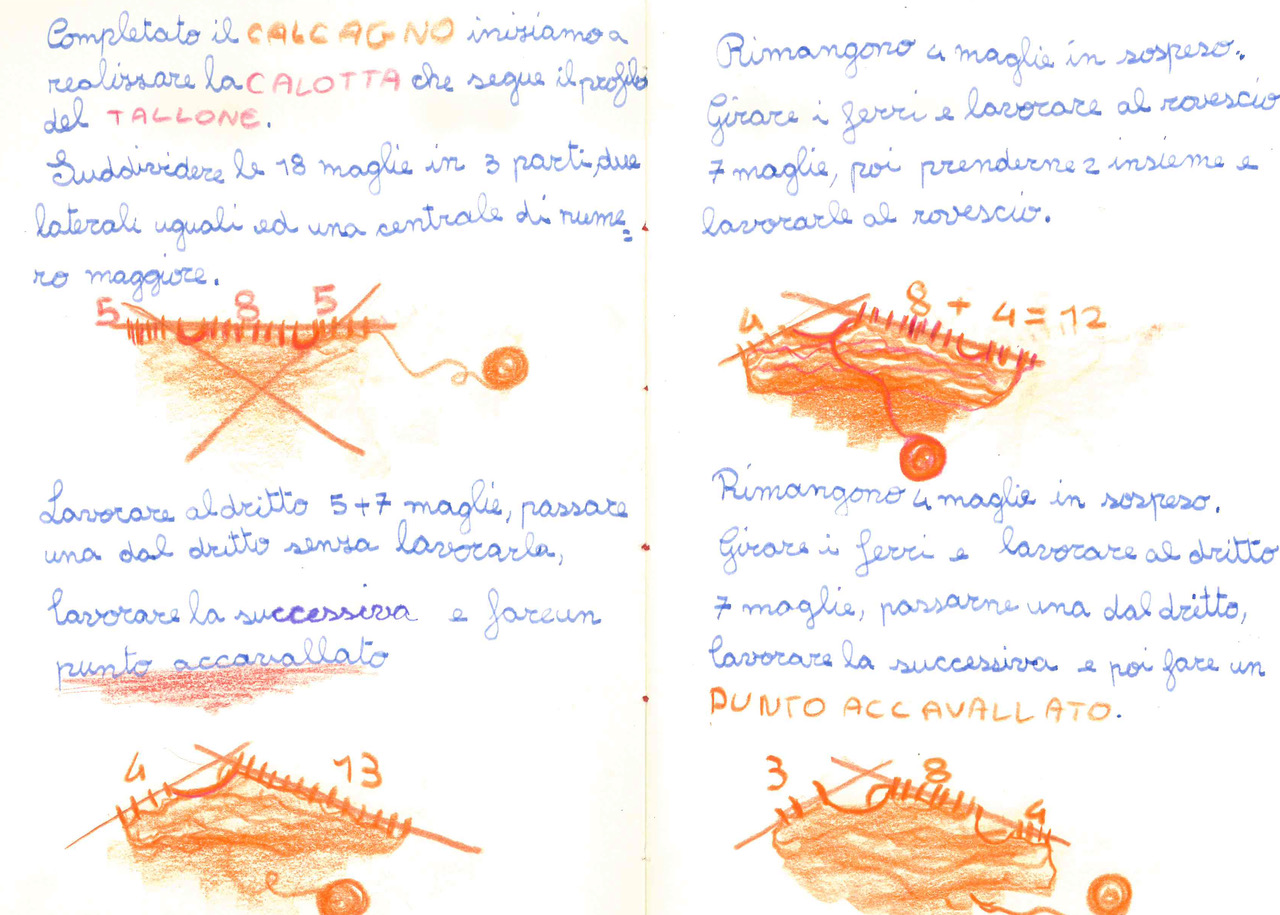 Completato il CALCAGNO iniziamo a
realizzare la CALOTTA che segue il profilo
del TALLONE.
Suddividere le 18 maglie in 3 parti, due
laterali uguali ed una centrale di nume=
ro maggiore.
5 8 5
Lavorare al dritto 5+7 maglie, passare
una dal dritto senza lavorarla,
lavorare la successiva e fare un
punto accavallato
4 13
Rimangono 4 maglie in sospeso.
Girare i ferri e lavorare al rovescio
7 maglie, poi prenderne 2 insieme e
lavorarle al rovescio.
4 8 + 4 = 12
Rimangono 4 maglie in sospeso.
Girare i ferri e lavorare al dritto
7 maglie, passarne una dal dritto,
lavorare la successiva e poi fare un
PUNTO ACCAVALLATO.
3 8 4